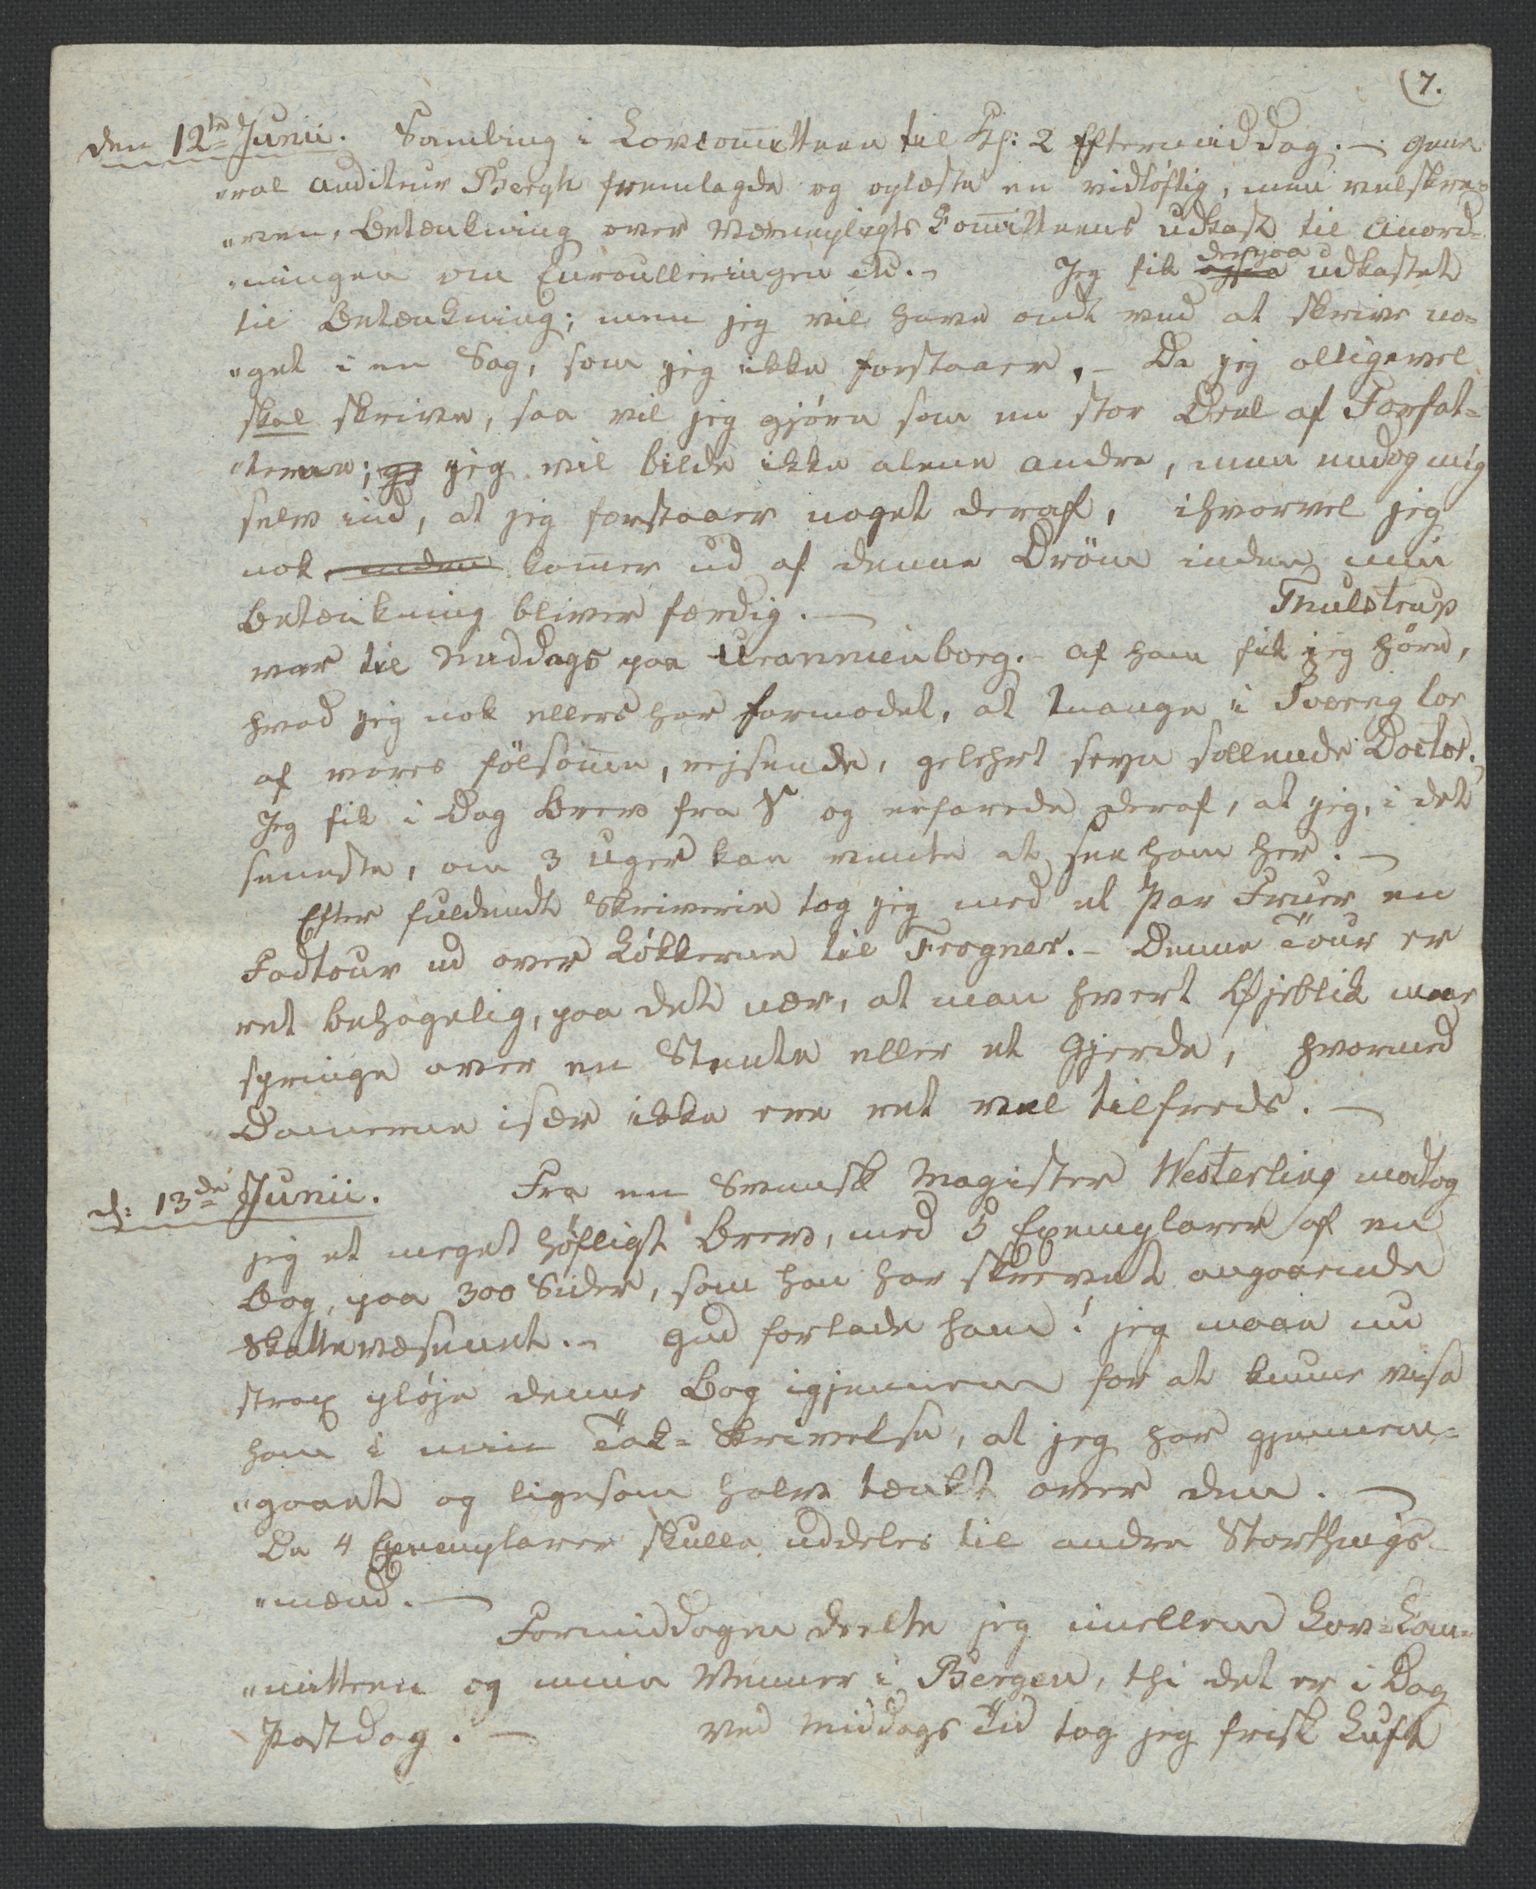 (7.
den 12te Junii. Samling i Lovcomitteen til Kl: 2 Eftermiddag. — Gene-
"ral Auditeur Bergh fremlagde og oplæste en vidløftig, men velskre-
"ven, Betænkning over Værnepligts Comitteens Udkast til Anord-
"ningen om Enroulleringen etc. — Jeg fik ogsaa desuoa Udkastet
til Betænkning; men jeg vil have ondt ved at skrive no-
"get i en Sag, som jeg ikke forstaaer, — Da jeg alligevel
skal skrive, saa vil jeg gjøre som en stor Deel af Forfat-
"terne; jeg vil bilde ikke alene andre, men endog mig
selv ind, at jeg forstaaer noget deraf, ihvorvel jeg
nok inden kommer ud af denne Dröm inden min
Betænkning bliver færdig. — Thulstrup
var til Middags paa Uranienborg. — Af ham fik jeg høre,
hvad jeg nok ellers har formodet, at mange i Sverrig loe
af vores fölsomme, rejsende, gelehrt seyn sollende Doctor.
Jeg fik i Dag Brev fra og erfarede deraf, at jeg, i det
seneste, om 3 Uger kan vente at see ham her. —
Efter fuldendt Skriverie tog jeg med et Par Fruer en
Fodtour ud over Løkkerne til Frogner. — Denne Tour er
ret behagelig, paa det nær, at man hvert Øjeblik maae
springe over en Stente eller et Gjerde, hvormed
Damerne især ikke ere ret vel tilfreds. —
d: 13de Junii. Fra en Svensk Magister Westerling modtog
jeg et meget høfligt Brev, med 5 Exemplarer af en
Bog, paa 300 Sider, som han har skrevet angaaende
Skattevæsenet. — Gud forlade ham! jeg maae nu
strax pløje denne Bog igjennem for at kunne vise
ham i min Tak-Skrivelse, at jeg har gjennem-
"gaaet og ligesom halv tænkt over den. —
De 4 Exemplarer skulle uddeles til andre Storthings-
"mænd. —
Formiddagen deelte jeg imellem Lov-Com-
"mitteen og mine Venner i Bergen, thi det er i Dag
Postdag. — Ved Middags Tid tog jeg frisk Luft